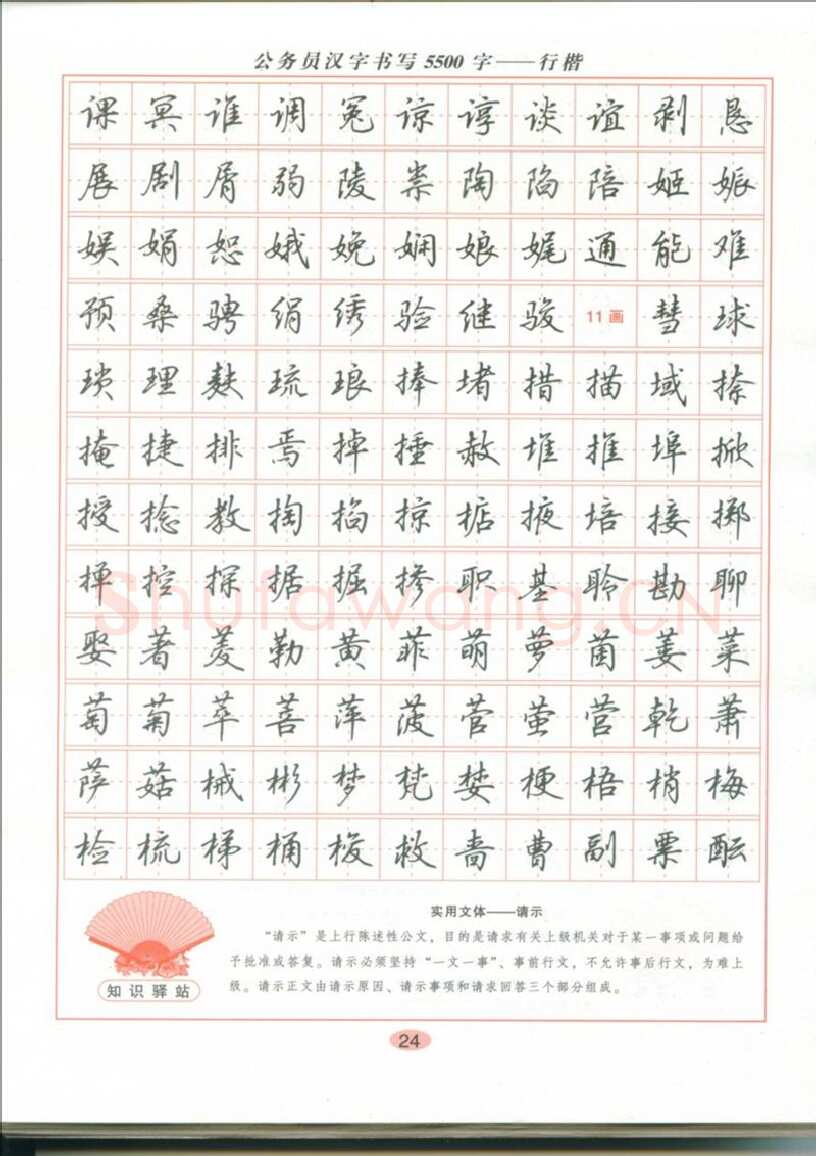 公务员汉字书写5500字——行楷
课冥谁调冤谅谆谈谊剥恳
展剧屑弱陵祟陶陷陪姬娠
娱娟恕娥娩娴娘娓通能难
预桑骋绢绣验继骏11画彗球
琐理麸琉琅捧堵措描域捺
掩捷排焉掉捶赦堆推埠掀
授捻教掏掐掠掂掖培接掷
掸控探据掘掺职基聆勘聊
娶著菱勒黄菲萌萝菌萎菜
萄菊萃菩萍菠菅萤营乾萧
萨菇械彬梦梵婪梗梧梢梅
检梳梯桶梭救啬曹副票酝
实用文体——请示
“请示”是上行陈述性公文，目的是请求有关上级机关对于某一事项或问题给
予批准或答复。请示必须坚持“一文一事”、事前行文，不允许事后行文，为难上
级。请示正文由请示原因、请示事项和请求回答三个部分组成。
知识驿站
24
Shufawang.CN